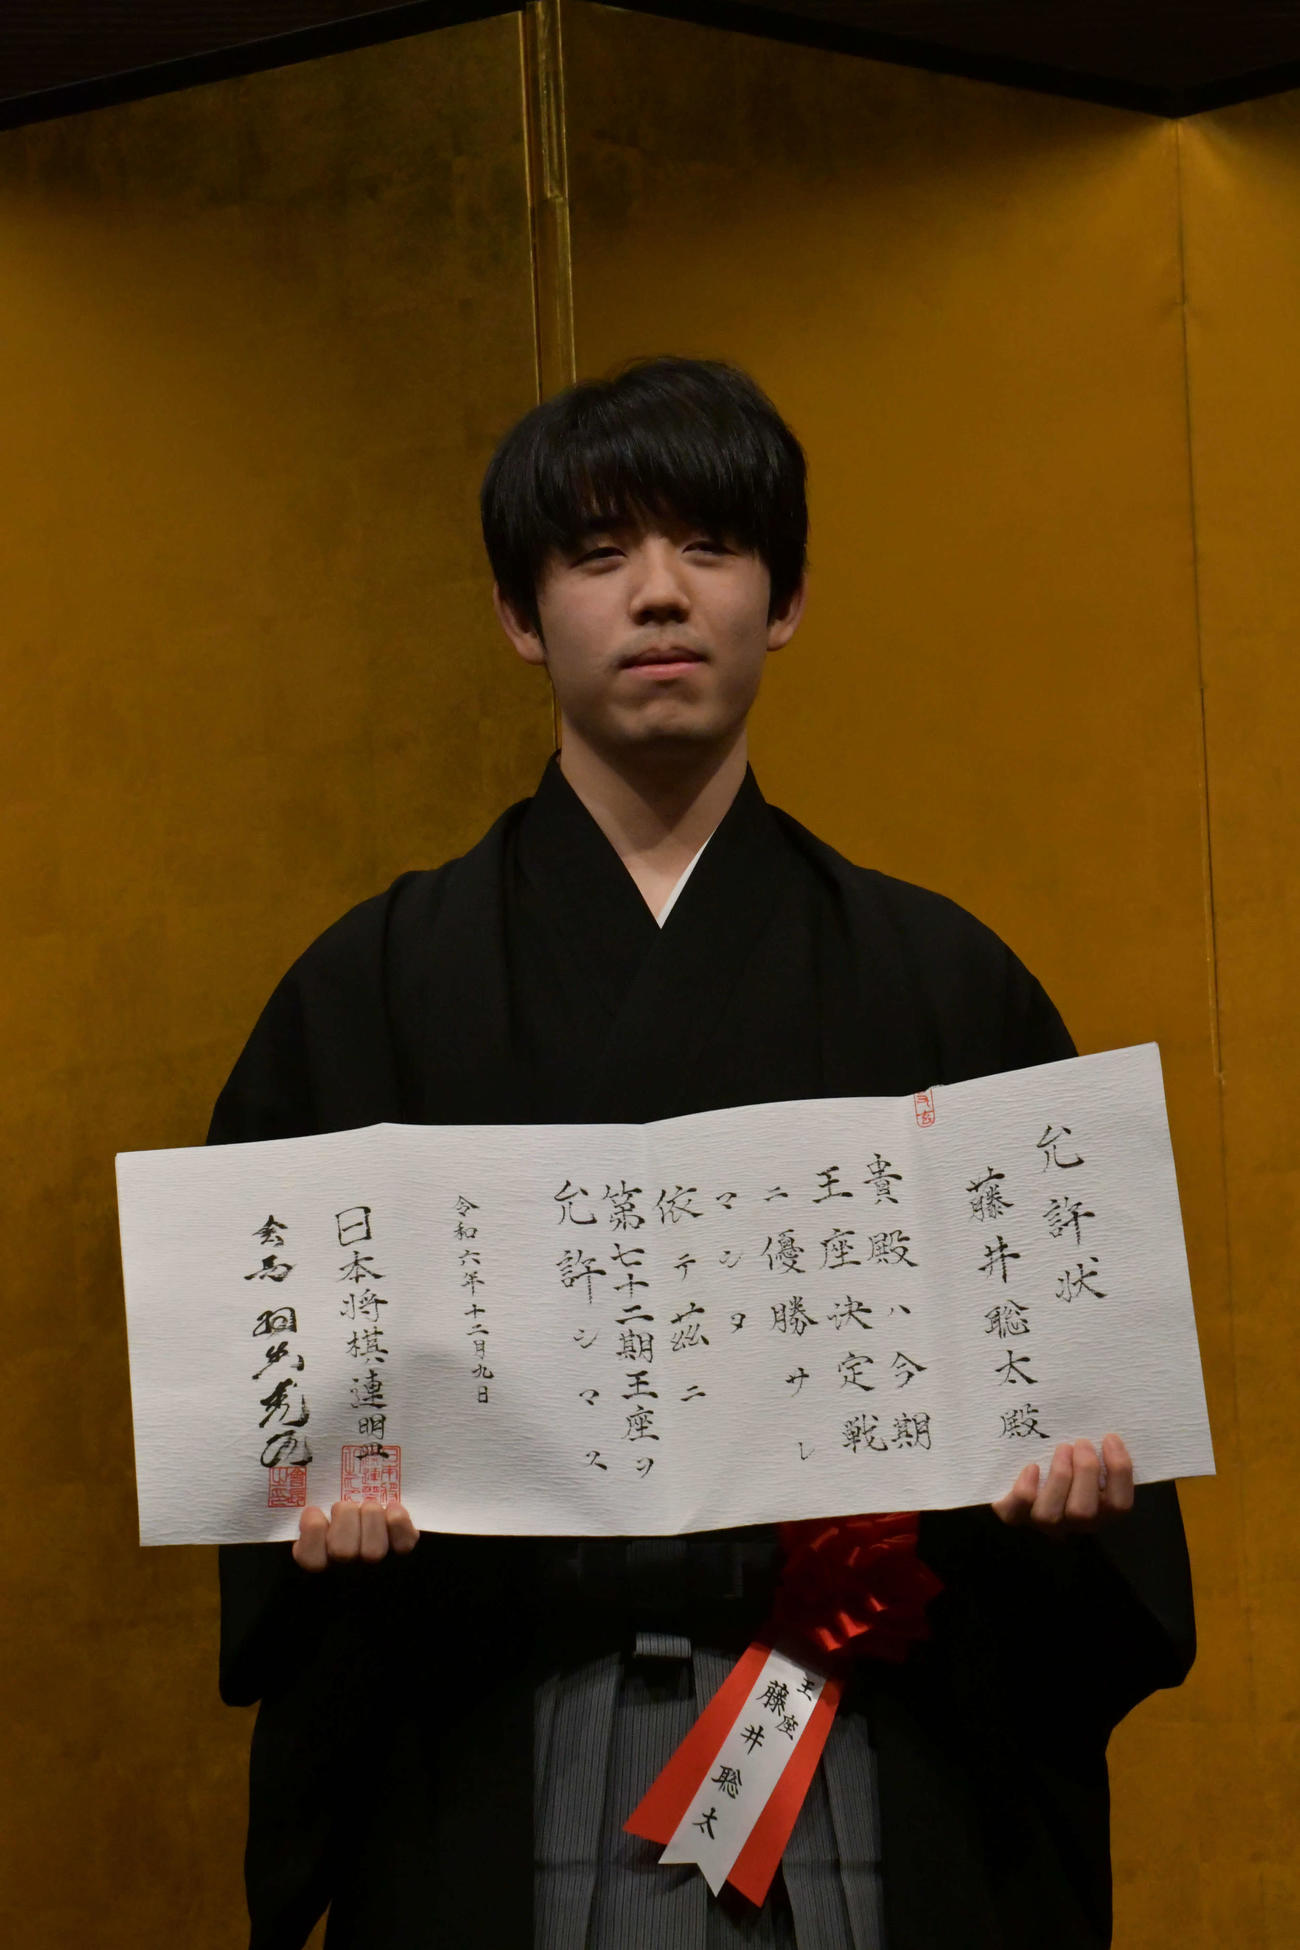 允許状
藤井聡太殿
貴殿ハ今期
王座決定戦
ニ優勝サレ
マシタ
依テ茲ニ
第七十二期王座ヲ
允許シマス
令和六年十二月九日
日本将棋連盟
会長 羽生善治
王座
藤井聡太